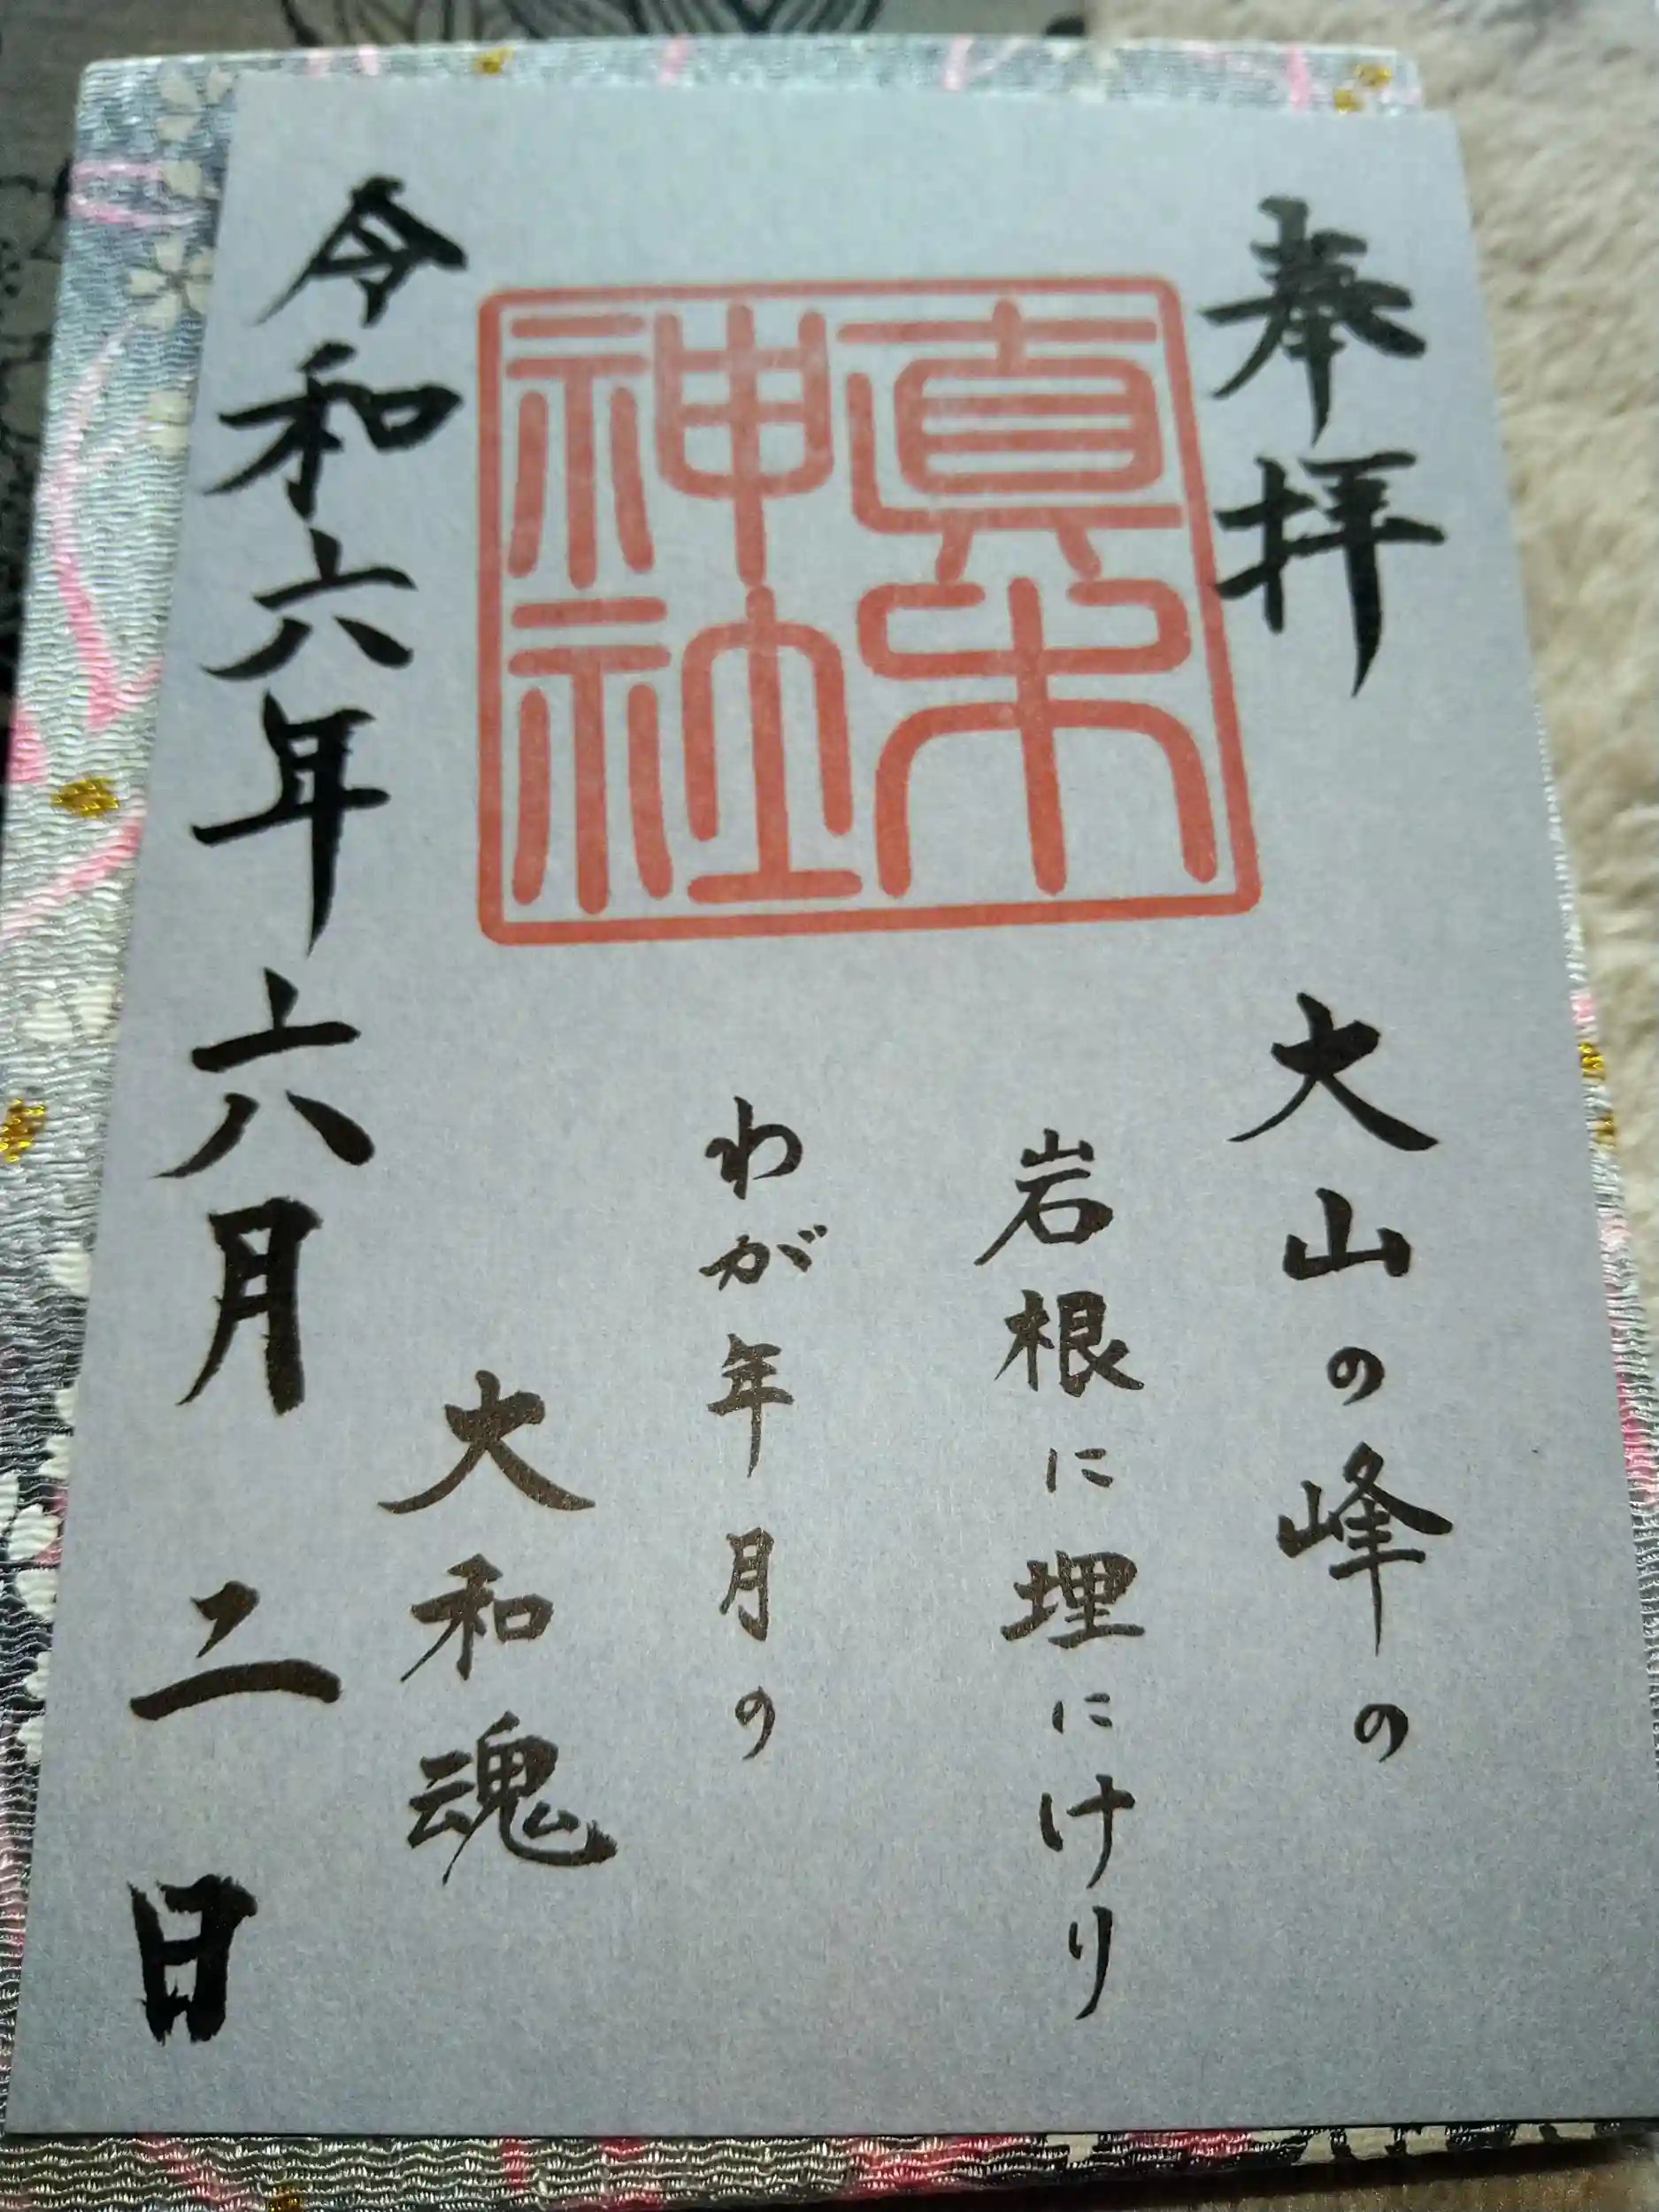 奉拝
真木
神社
大山の峰の
岩根に埋にけり
わが年月の
大和魂
令和六年六月二日